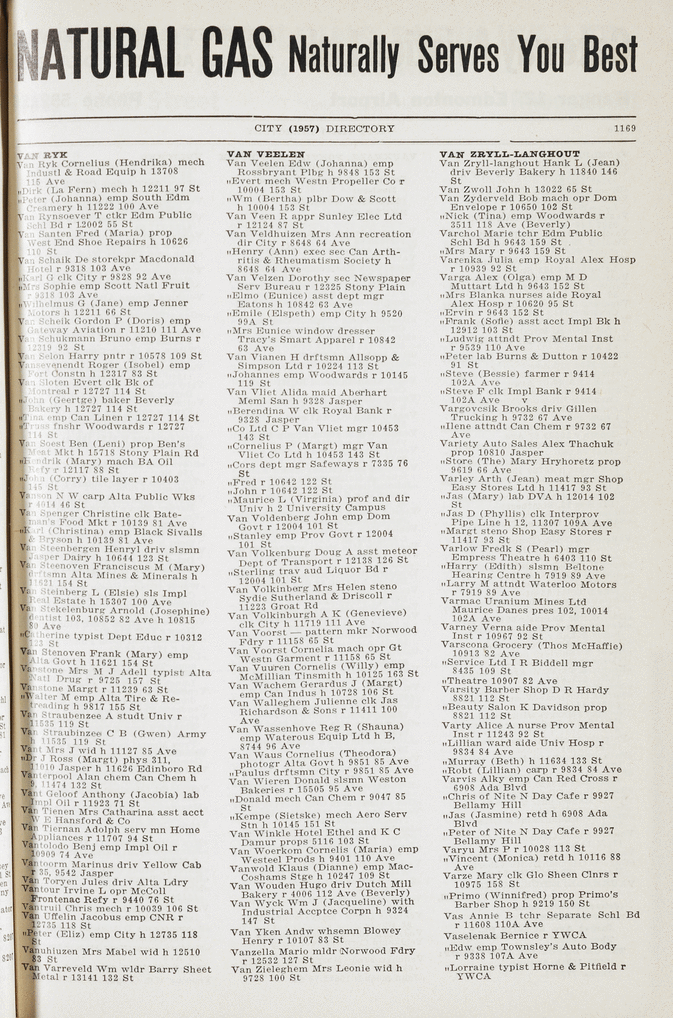 NATURAL GAS Naturally Serves You Best
CITY (1957) DIRECTORY 1169
VAN RYK
Van Ryk Cornelius (Hendrika) mech
Industl & Road Equip h 13708
115 Ave
„Dirk (La Fern) mech h 12211 97 St
„Peter (Johanna) emp South Edm
Creamery h 11222 100 Ave
Van Rynsoever T ctkr Edm Public
Schl Bd r 12002 55 St
Van Santen Fred (Maria) prop
West End Shoe Repairs h 10626
110 St
Van Schaik De storekpr Macdonald
Hotel r 9318 103 Ave
„Karl G clk City r 9828 92 Ave
„Mrs Sophie emp Scott Natl Fruit
r 9318 103 Ave
„Wilhelmus G (Jane) emp Jenner
Motors h 12211 66 St
Van Scheik Gordon P (Doris) emp
Gateway Aviation r 11210 111 Ave
Van Schukmann Bruno emp Burns r
12319 92 St
Van Selon Harry pntr r 10578 109 St
Vansevenendt Roger (Isobel) emp
Fort Constn h 12317 83 St
Van Sloten Evert clk Bk of
Montreal r 12727 114 St
„John (Geertge) baker Beverly
Bakery h 12727 114 St
„Tina emp Can Linen r 12727 114 St
„Truus fnshr Woodwards r 12727
114 St
Van Soest Ben (Leni) prop Ben's
Meat Mkt h 15718 Stony Plain Rd
„Hendrik (Mary) mach BA Oil
Refy r 12117 88 St
„John (Corry) tile layer r 10403
145 St
Vanson N W carp Alta Public Wks
r 4014 46 St
Van Spenger Christine clk Bate-
man's Food Mkt r 10139 81 Ave
„Karl (Christina) emp Black Sivalls
& Bryson h 10139 81 Ave
Van Steenbergen Henryl driv slsmn
Jasper Dairy h 10644 123 St
Van Steenoven Franciscus M (Mary)
drftsmn Alta Mines & Minerals h
11621 154 St
Van Steinberg L (Elsie) sls Impl
Real Estate h 15307 100 Ave
Van Stekelenburg Arnold (Josephine)
dentist 103, 10852 82 Ave h 10815
80 Ave
„Catherine typist Dept Educ r 10312
123 St
Van Stenoven Frank (Mary) emp
Alta Govt h 11621 154 St
Vanstone Mrs M J Adell typist Alta
Natl Drug r 9725 157 St
Vanstone Margt r 11239 63 St
„Walter M emp Alta Tire & Re-
treading h 9817 155 St
Van Straubenzee A studt Univ r
11535 119 St
Van Straubinzee C B (Gwen) Army
h 11535 119 St
Vant Mrs J wid h 11127 85 Ave
„Dr J Ross (Margt) phys 311,
11010 Jasper h 11626 Edinboro Rd
Vanterpool Alan chem Can Chem h
9, 11474 132 St
Vant Geloof Anthony (Jacobia) lab
Impl Oil r 11923 71 St
Van Tienen Mrs Catharina asst acct
W E Hansford & Co
Van Tiernan Adolph serv mn Home
Appliances r 11707 94 St
Vantolodo Benj emp Impl Oil r
10909 74 Ave
Vantoorm Marinus driv Yellow Cab
r 35, 9542 Jasper
Van Toryen Jules driv Alta Ldry
Vantour Irvine L opr McColl
Frontenac Refy r 9440 76 St
Vantruil Chris mech r 10039 106 St
Van Uffelin Jacobus emp CNR r
12735 118 St
„Peter (Eliz) emp City h 12735 118
St
Vanuhiuzen Mrs Mabel wid h 12510
83 St
Van Varreveld Wm wldr Barry Sheet
Metal r 13141 132 St
VAN VEELEN
Van Veelen Edw (Johanna) emp
Rossbryan Plbg h 9848 153 St
„Evert mech Westn Propeller Co r
10004 153 St
„Wm (Bertha) plbr Dow & Scott
h 10004 153 St
Van Veen R appr Sunley Elec Ltd
r 12124 87 St
Van Veldhuizen Mrs Ann recreation
dir City r 8648 64 Ave
„Henry (Ann) exec sec Can Arth-
ritis & Rheumatism Society h
8648 64 Ave
Van Velzen Dorothy sec Newspaper
Serv Bureau r 12325 Stony Plain
„Elmo (Eunice) asst dept mgr
Eatons h 10842 63 Ave
„Emile (Elspeth) emp City h 9520
99A St
„Mrs Eunice window dresser
Tracy's Smart Apparel r 10842
63 Ave
Van Vianen H drftsmn Allsopp &
Simpson Ltd r 10224 113 St
„Johannes emp Woodwards r 10145
119 St
Van Vliet Alida maid Aberhart
Meml San h 9328 Jasper
„Berendina W clk Royal Bank r
9328 Jasper
„Co Ltd C P Van Vliet mgr 10453
143 St
„Cornelius P (Margt) mgr Van
Vliet Co Ltd h 10453 143 St
„Cors dept mgr Safeways r 7335 76
St
„Fred r 10642 122 St
„John r 10642 122 St
„Maurice L (Virginia) prof and dir
Univ h 2 University Campus
Van Voldenberg John emp Dom
Govt r 12004 101 St
„Stanley emp Prov Govt r 12004
101 St
Van Volkenburg Doug A asst meteor
Dept of Transport r 12138 126 St
„Sterling trav aud Liquor Bd r
12004 101 St
Van Volkinberg Mrs Helen steno
Sydie Sutherland & Driscoll r
11223 Groat Rd
Van Volkinburgh A K (Genevieve)
clk City h 11719 111 Ave
Van Voorst — pattern mkr Norwood
Fdry r 11158 65 St
Van Voorst Cornelia mach opr Gt
Westn Garment r 11158 65 St
Van Vuuren Cornelis (Willy) emp
McMillian Tinsmith h 10125 163 St
Van Wachem Gerardus J (Margt)
emp Can Indus h 10728 106 St
Van Walleghem Julienne clk Jas
Richardson & Sons r 11411 100
Ave
Van Wassenhove Reg R (Shauna)
emp Waterous Equip Ltd h B,
8744 96 Ave
Van Waus Cornelius (Theodora)
photogr Alta Govt h 9851 85 Ave
„Paulus drftsmn City r 9851 85 Ave
Van Wieren Donald slsmn Weston
Bakeries r 15505 95 Ave
„Donald mech Can Chem r 9047 85
St
„Kempe (Sietske) mech Aero Serv
Stn h 10145 151 St
Van Winkle Hotel Ethel and K C
Damur props 5116 103 St
Van Woerkom Cornelis (Maria) emp
Westeel Prods h 9401 110 Ave
Vanwold Klaus (Dianne) emp Mac-
Coshams Stge h 10247 109 St
Van Wouden Hugo driv Dutch Mill
Bakery r 4006 112 Ave (Beverly)
Van Wyck Wm J (Jacqueline) with
Industrial Accptce Corpn h 9324
147 St
Van Yken Andw whsemn Blowey
Henry r 10107 83 St
Vanzella Mario mldr Norwood Fdry
r 12532 127 St
Van Zieleghem Mrs Leonie wid h
9728 100 St
VAN ZRYLL-LANGHOUT
Van Zryll-langhout Hank L (Jean)
driv Beverly Bakery h 11840 146
St
Van Zwoll John h 13022 65 St
Van Zyderveld Bob mach opr Dom
Envelope r 10650 102 St
„Nick (Tina) emp Woodwards r
3511 118 Ave (Beverly)
Varchol Marie tchr Edm Public
Schl Bd h 9643 159 St
„Mrs Mary r 9643 159 St
Varenka Julia emp Royal Alex Hosp
r 10939 92 St
Varga Alex (Olga) emp M D
Muttart Ltd h 9643 152 St
„Mrs Blanka nurses aide Royal
Alex Hosp r 10620 95 St
„Ervin r 9643 152 St
„Frank (Sofie) asst acct Impl Bk h
12912 103 St
„Ludwig attndt Prov Mental Inst
r 9539 110 Ave
„Peter lab Burns & Dutton r 10422
91 St
„Steve (Bessie) farmer r 9414
102A Ave
„Steve F clk Impl Bank r 9414
102A Ave v
Vargovcsik Brooks driv Gillen
Trucking h 9732 67 Ave
„Ilene attndt Can Chem r 9732 67
Ave
Variety Auto Sales Alex Thachuk
prop 10810 Jasper
„Store (The) Mary Hryhoretz prop
9619 66 Ave
Varley Arth (Jean) meat mgr Shop
Easy Stores Ltd h 11417 93 St
„Jas (Mary) lab DVA h 12014 102
St
„Jas D (Phyllis) clk Interprov
Pipe Line h 12, 11307 109A Ave
„Margt steno Shop Easy Stores r
11417 93 St
Varlow Fredk S (Pearl) mgr
Empress Theatre h 6403 110 St
„Harry (Edith) slsmn Beltone
Hearing Centre h 7919 89 Ave
„Larry M attndt Waterloo Motors
r 7919 89 Ave
Varmac Uranium Mines Ltd
Maurice Danes pres 102, 10014
102A Ave
Varney Verna aide Prov Mental
Inst r 10967 92 St
Varscona Grocery (Thos McHaffie)
10913 82 Ave
„Service Ltd I R Biddell mgr
8435 109 St
„Theatre 10907 82 Ave
Varsity Barber Shop D R Hardy
8821 112 St
„Beauty Salon K Davidson prop
8821 112 St
Varty Alice A nurse Prov Mental
Inst r 11243 92 St
„Lillian ward aide Univ Hosp r
9834 84 Ave
„Murray (Beth) h 11634 133 St
„Robt (Lillian) carp r 9834 84 Ave
Varvis Alky emp Can Red Cross r
6908 Ada Blvd
„Chris of Nite N Day Cafe r 9927
Bellamy Hill
„Jas (Jasmine) retd h 6908 Ada
Blvd
„Peter of Nite N Day Cafe r 9927
Bellamy Hill
Varyu Mrs P r 10028 113 St
„Vincent (Monica) retd h 10116 88
Ave
Varze Mary clk Glo Sheen Clnrs r
10975 158 St
„Primo (Winnifred) prop Primo's
Barber Shop h 9219 150 St
Vas Annie B tchr Separate Schl Bd
r 11608 110A Ave
Vaselenak Bernice r YWCA
„Edw emp Townsley's Auto Body
r 9338 107A Ave
„Lorraine typist Horne & Pitfield r
YWCA